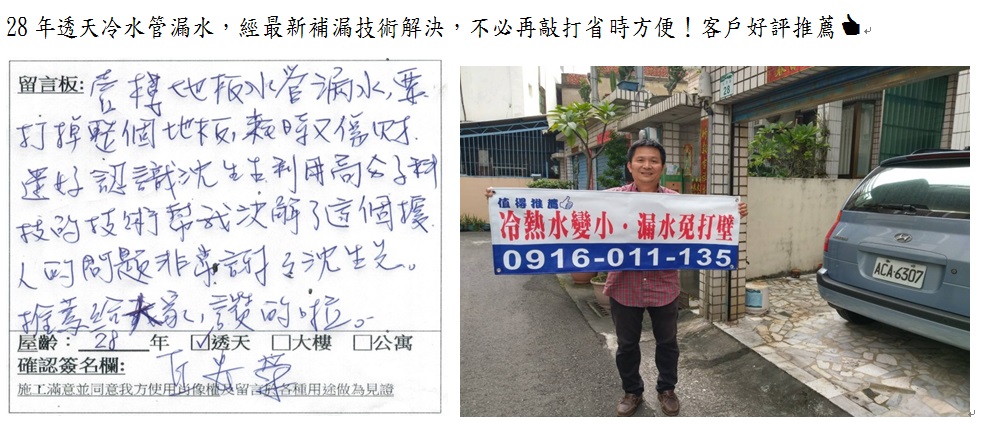 28 年透天冷水管漏水，經最新補漏技術解決，不必再敲打省時方便！客戶好評推薦
留言板: 地板水管漏水,要
打掉整個地板,耗時又傷財.
還好認識沈先生利用高分子科
技的技術幫我決解了這個擾
人的問題非常謝謝沈先生。
推薦給大家,讚的啦。
屋齡：28 年 ☑透天 □大樓 □公寓
確認簽名欄:
施工滿意並同意我方使用肖像權及留言於各種用途做為見證
值得推薦
冷熱水變小‧漏水免打壁
0916-011-135
28
ACA·6307